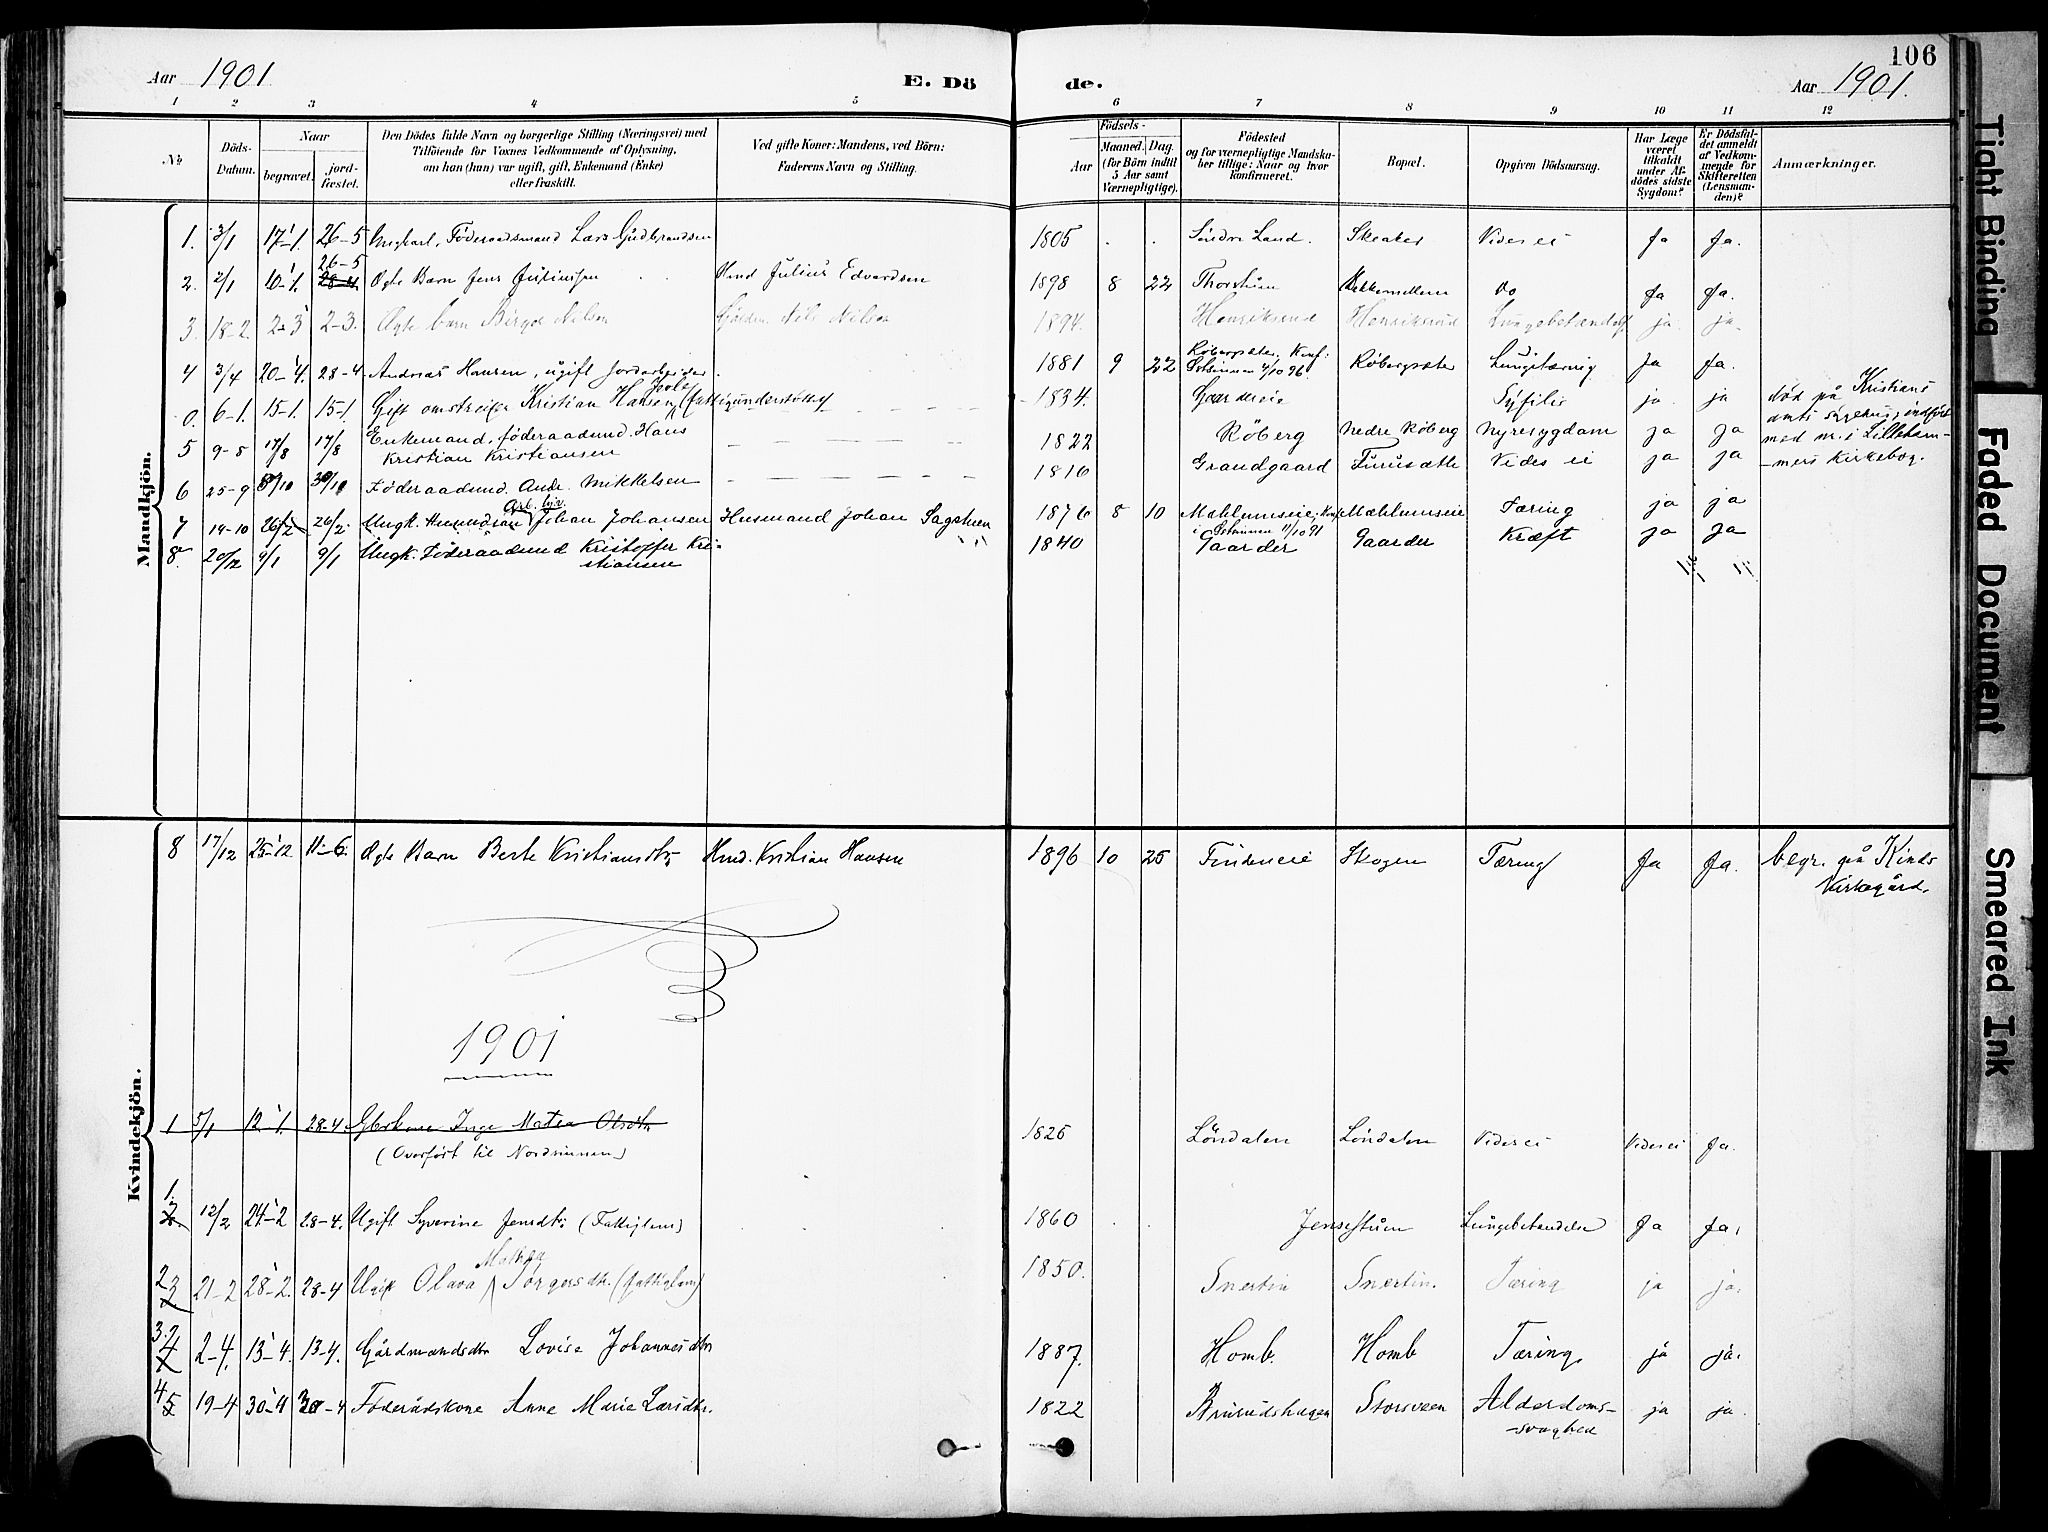 106
Aar 1901
E. Dö de.
Aar 1901.
1 2 3 4 5 6 7 8 9 10 11 12
№
Döds-Datum.
Naar
begravet.
jord-fæstet.
Den Dödes fulde Navn og borgerlige Stilling (Næringsvei) med
Tilföiende for Voxnes Vedkommende af Oplysning,
om han (hun) var ugift, gift, Enkemand (Enke)
eller fraskilt.
Ved gifte Koner: Mandens, ved Börn:
Faderens Navn og Stilling.
Födsels-
Aar
Maaned. Dag.
(for Börn indtil
5 Aar samt
Værnepligtige).
Födested
og for værnepligtige Mandska-
ber tillige: Naar og hvor
konfirmeret.
Bopæl.
Opgiven Dödsaarsag.
Har Læge
været
tilkaldt
under Af-
dödes sidste
Sygdom?
Er Dödsfal-
det anmeldt
af Vedkom-
mende for
Skifteretten
(Lensman-
den)?
Anmærkninger.
Mandkjön.
1. 3/1 17-1. 26-5 Ungkarl, Föderaadsmand Lars Gudbrandsen 1805 . . Söndre Land. Skeaker Vides ei Ja Ja.
26-5
2. 2/1 10-1. 28-4. Ægte Barn Jens Juliussen Hmd Julius Edvardsen 1898 8 22 Thorstuen Do Ja Ja.
3. 18-2. 2-3 2-3. Ægte barn Birger Nilsen Nils Nilsen 1894. Henriksrud Henriksrud Lungebetændelse ja ja.
4 3/4 20-4. 28-4 Andreas Hansen, ugift Jordarbeider. 1881 9 22 Röbergsæter, Konf: Röbergsæter Lungetæring Ja Ja.
Østsinnen 4/10 96.
0. 6-1. 15-1. 15-1. Gift omstreifer Kristian Hansen (fattigunderstøttet) 1834. Gaardereie Syfilis ja ja død på Kristians
amts sygehus; indført
med nr. i Lilleham-
-mers Kirkebog.
5 9-5 17/8 17/8 Enkemand, føderaadsmd. Hans
Kristian Kristiansen — — — — 1822 Röberg Nedre Röberg Nyresygdom ja Ja
6 25-9 30/10 30/10 Føderaadsmd. Ande. Mikkelsen — — — — 1816 Grandgaard Furusæth Vides ei ja ja
7 14-10 26/2 26/2 Ungk. Husmdssøn Johan Johansen Husmand Johan Sagstuen 1876 8 10 Mæhlumseie, Konf Mæhlumseie Tæring ja ja
i Østsinnen 11/10 91
8. 20/12 9/1 9/1 Ungk. Føderaadsmd Kristoffer Kri-
stiansen 1840 Gaarder Gaarder Kræft ja Ja
Kvindekjön.
8 17/12 25-12 11-6. Ægte Barn Berte Kristiansdtr. Hmd. Kristian Hansen 1896 10 25 Findeneie Skogen Tæring Ja Ja. begr. på Kinds
Kirkegård.
1901
1 5/1 12-1. 28-4 Inge Matea Olsdtr 1825 Löndalen Löndalen Vides ei Vides ei Ja.
(Overført til Nordsinnen)
1.
2. 12/2 24-2 28-4. Ugift Syverine Jensdtr: (Fattiglem) 1860 . . Jensestuen Lungebetændelse Ja Ja.
Mathea
2 3 21-2 28-2. 28-4 Ugift Olava Torgersdtr. (fattiglem) 1850. Snertin Snertin. Tæring ja ja.
3. 4 2-4. 13-4. 13-4. Gårdmandsdtr Lovise Johannesdtr 1887. Homb. Homb Tæring, já já.
4 5 19-4 30-4 30-4 Føderådskone Anne Marie Larsdtr. 1822 Brurudshagen Storsveen Alderdoms-
-svaghed ja ja.
Tight Binding
Faded Document
Smeared Ink